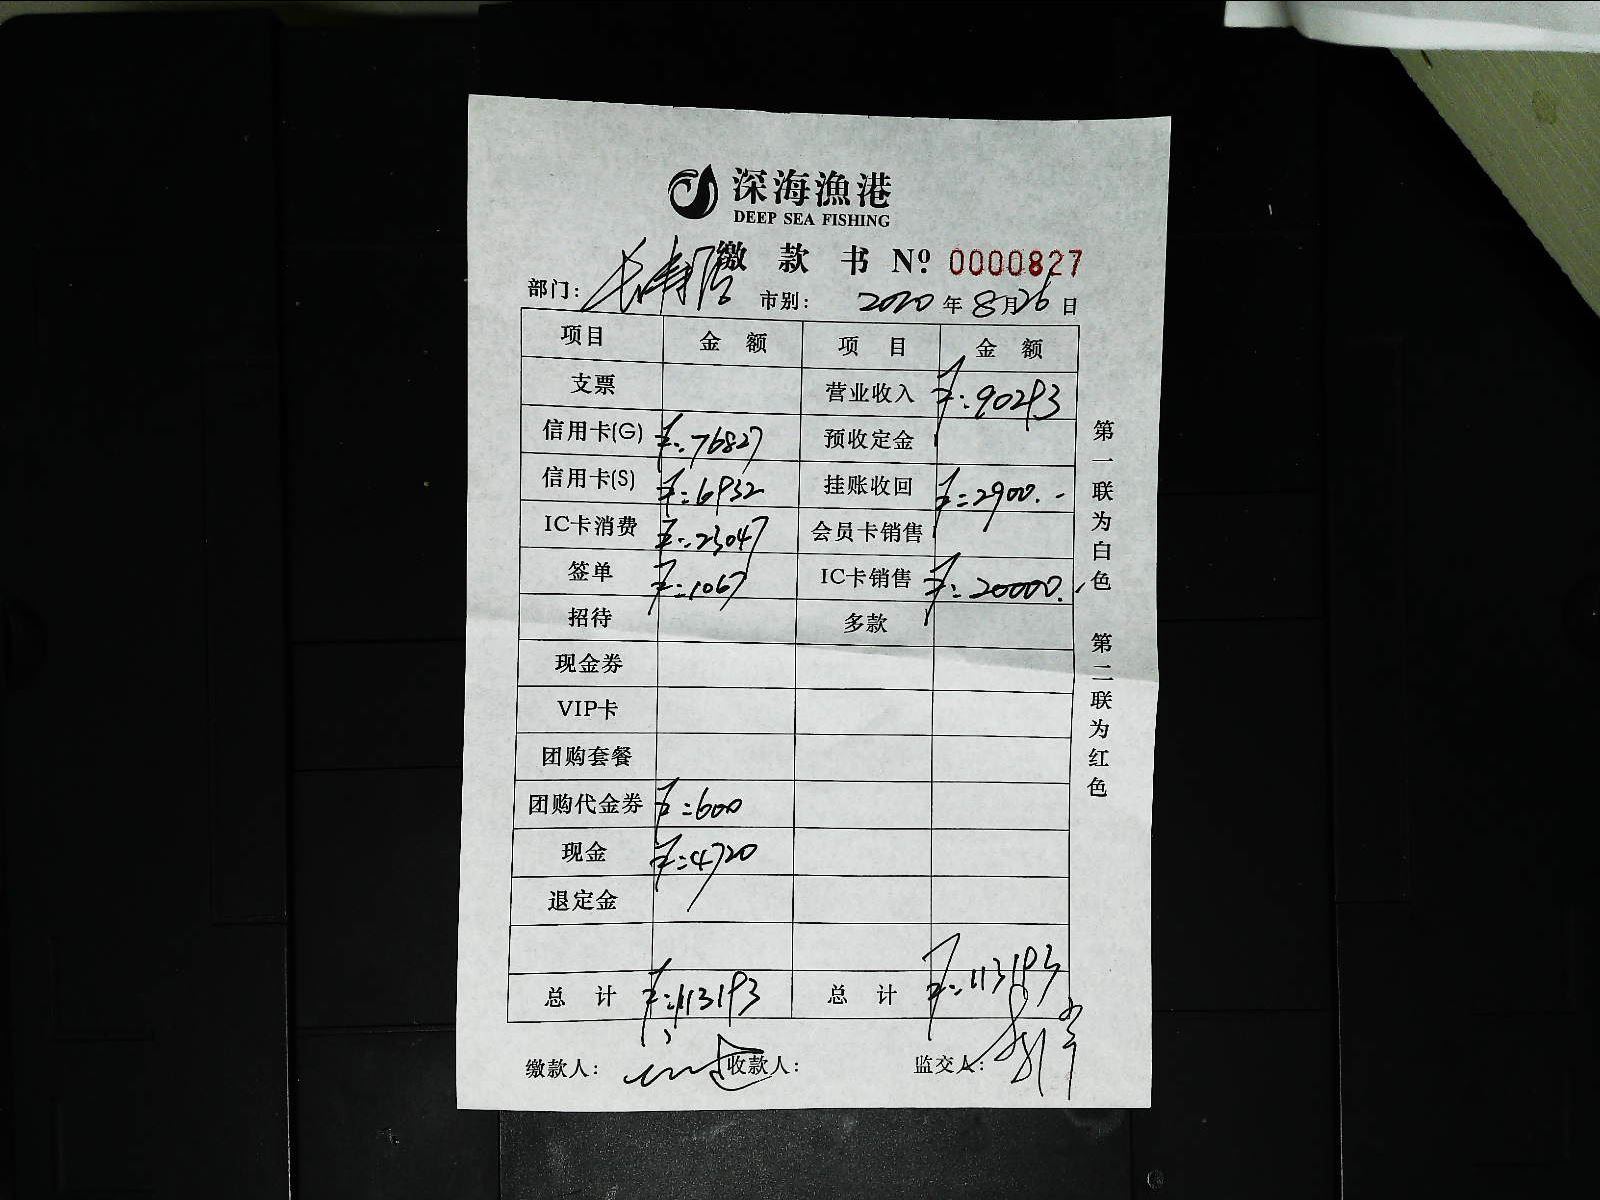 深海漁港
DEEP SEA FISHING
缴 款 书 Nº 0000827
部门: 长寿路 市别: 2020 年 8 月 26 日
项目 金 额 项 目 金 额
支票 营业收入 ¥:90293
信用卡(G) ¥:76827 预收定金
信用卡(S) ¥:6932 挂账收回 ¥:2900.-
IC卡消费 ¥:23047 会员卡销售
签单 ¥:1067 IC卡销售 ¥:20000.-
招待 多款
现金券
VIP卡
团购套餐
团购代金券 ¥:600
现金 ¥:4720
退定金
总 计 ¥:113193 总 计 ¥:113193
缴款人: 收款人: 监交人:
第一联为白色 第二联为红色